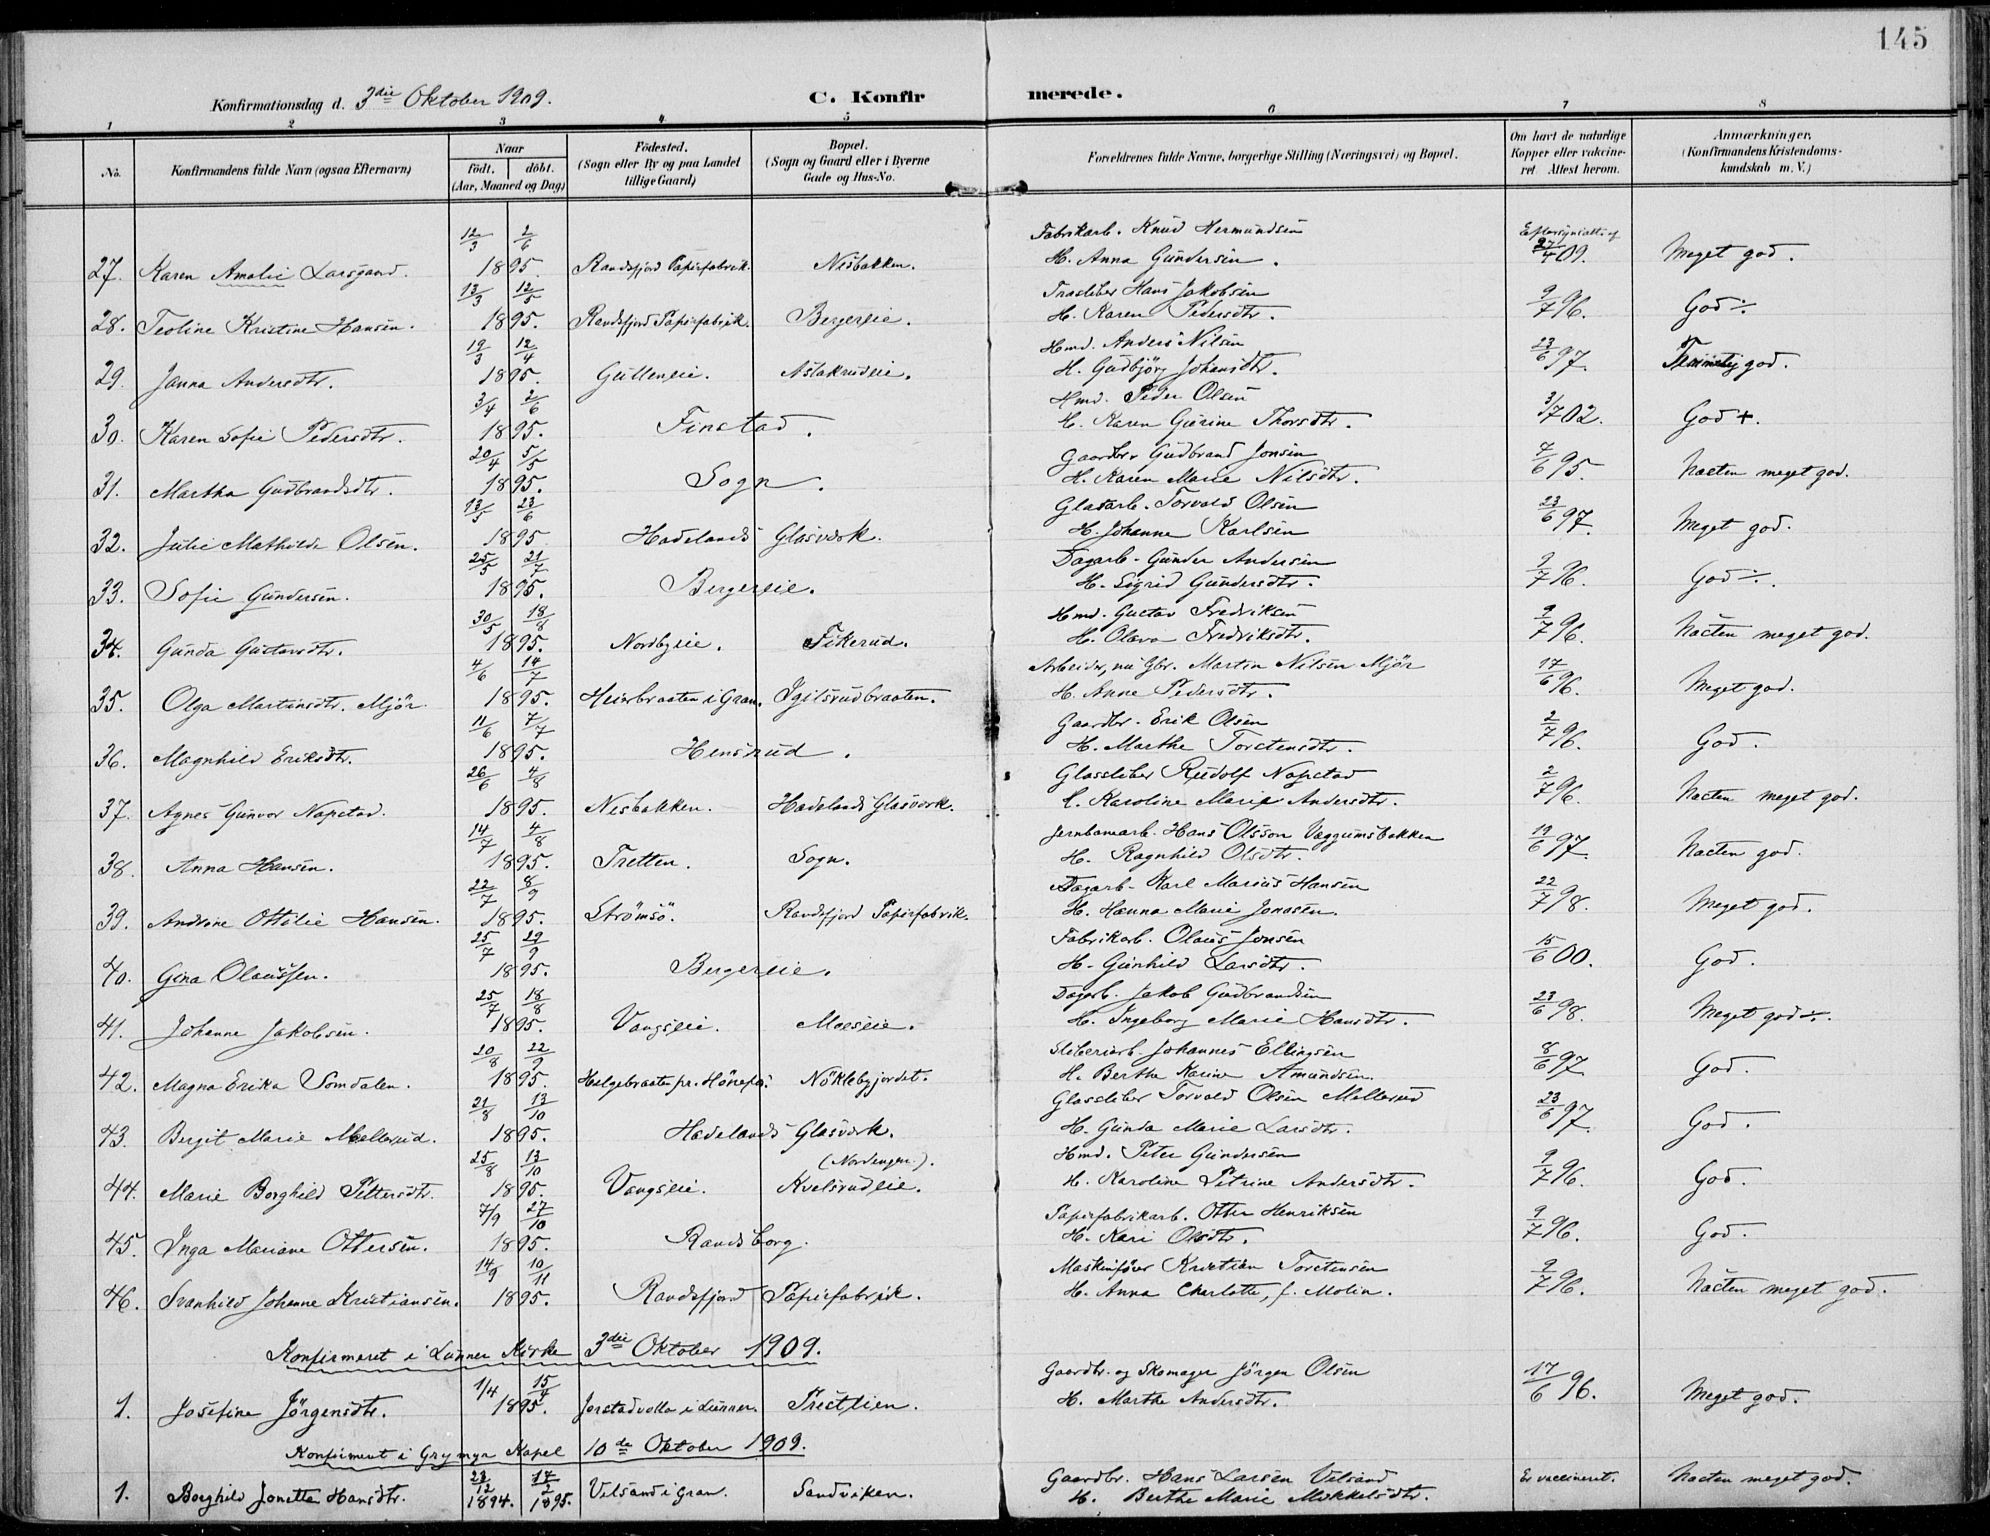 145
Konfirmationsdag d. 3die Oktober 1909. C. Konfirmerede.
1 2 3 4 5 6 7 8
No. Konfirmandens fulde Navn (ogsaa Efternavn) Naar født. døbt. (Aar, Maaned og Dag) Fødested. (Sogn eller By og paa Landet tillige Gaard) Bopæl. (Sogn og Gaard eller i Byerne Gade og Hus-No. Forældrenes fulde Navne, borgerlige Stilling (Næringsvei) og Bopæl. Om havt de naturlige Kopper eller vakcineret. Attest herom. Anmærkninger, (Konfirmandens Kristendomskundskab m. V.)
12/3 2/6 Fabrikarb. Knud Hermundsen
27. Karen Amalie Larsgard. 1895. Randsfjord Papirfabrik. Nesbakken. H. Anna Gundersen. 27/4 09. Meget god.
13/3 12/5 Træsliber Hans Jakobsen
28. Teoline Kristine Hansen. 1895. Randsfjord Papirfabrik. Bergereie. H. Karen Pedersdtr. 9/7 96. God ÷.
19/3 12/4 Hmd. Anders Nilsen
29. Janna Andersdtr. 1895. Gulleneie. Aslakrudeie. H. Gudbjørg Johansdtr. 23/6 97. Temmelig god.
3/4 2/6 Hmd. Peder Olsen
30. Karen Sofie Pedersdtr. 1895. Finstad. H. Karen Gurine Thorsdtr. 3/7 02. God +.
20/4 5/5 Gaardbr. Gudbrand Jonsen
31. Martha Gudbrandsdtr. 1895. Sogn. H. Karen Marie Nilsdtr. 7/6 95. Næsten meget god.
13/5 23/6 Glasarb. Torvald Olsen
32. Julie Mathilde Olsen. 1895. Hadelands Glasværk. H. Johanne Karlsen 23/6 97. Meget god.
25/5 21/7 Dagarb. Gunder Andersen
33. Sofie Gundersen. 1895. Bergereie. H. Sigrid Gundersdtr. 9/7 96. God ÷.
30/5 18/8 Hmd. Gustav Fredriksen
34. Gunda Gustavsdtr. 1895. Nordbyeie. Fikerud. H. Olava Fredriksdtr. 9/7 96. Næsten meget god.
4/6 14/7 Arbeider, nu Gbr. Martin Nilsen Mjør
35. Olga Martinsdtr. Mjør. 1895. Heierbraaten i Gran. Igilsrudbraaten. H. Anne Pedersdtr. 17/6 96. Meget god.
11/6 7/7 Gaardbr. Erik Olsen
36. Magnhild Eriksdtr. 1895. Hensrud. H. Marthe Torstensdtr. 2/7 96. God.
26/6 4/8 Glassliber Rudolf Napstad
37. Agnes Gunvor Napstad. 1895. Nesbakken. Hadelands Glasværk. H. Karoline Marie Andersdtr. 2/7 96. Næsten meget god.
14/7 4/8 Jernbanearb. Hans Olsson Væggumsbakken
38. Anna Hansen. 1895. Tretten. Sogn. H. Ragnhild Olsdtr. 19/6 97. Næsten god.
22/7 8/9 Dagarb. Karl Marius Hansen
39. Andrine Ottilie Hansen. 1895. Strømsø. Randsfjord Papirfabrik. H. Hanna Marie Jonasen. 22/7 98. Meget god.
25/7 29/9 Fabrikarb. Olaus Jonsen
40. Gina Olaussen. 1895. Bergereie. H. Gunhild Larsdtr. 15/6 00. God.
25/7 18/8 Dagarb. Jakob Gudbrandsen
41. Johanne Jakobsen. 1895. Vangseie. Moeseie. H. Ingeborg Marie Hansdtr. 23/6 98. Meget god ÷.
20/8 22/9 Sliberiarb. Johannes Ellingsen
42. Magna Erika Somdalen. 1895. Helgebraaten pr. Hønefos. Nøklebyjordet. H. Berthe Karine Amundsen. 8/6 97. God.
21/8 13/10 Glassliber Torvald Olsen Mellerud
43. Bergit Marie Mellerud. 1895. Hadelands Glasværk. H. Gunda Marie Larsdtr. 23/6 97. God.
25/8 13/10 (Nordengen). Hmd. Peter Gundersen
44. Marie Borghild Pettersdtr. 1895. Vangseie. Kvelsrudeie. H. Karoline Petrine Andersdtr. 9/7 96. God.
7/9 27/10 Papirfabrikarb. Otter Henriksen
45. Inga Mariane Ottersen. 1895. Randsborg. H. Kari Olsdtr. 9/7 96. God.
14/9 10/11 Maskinfører Kristian Torstensen
46. Svanhild Johanne Kristiansen. 1895. Randsfjord Papirfabrik. H. Anna Charlotte, f. Molin. 9/7 96. Næsten meget god.
Konfirmeret i Lunner Kirke 3die Oktober 1909.
1/4 15/4 Gaardbr. og Skomager Jørgen Olsen
1. Josefine Jørgensdtr. 1895. Jorstadvolla i Lunner. Prestlien. H. Marthe Andersdtr. 17/6 96. Meget god.
Konfirmert i Grymyr Kapel 10de Oktober 1909.
23/12 17/2 Gaardbr. Hans Larsen Velsand
1. Borghild Jonette Hansdtr. 1894. 1895. Velsand i Gran. Sandviken. H. Berthe Marie Mikkelsdtr. Er vaccineret. Næsten meget god.